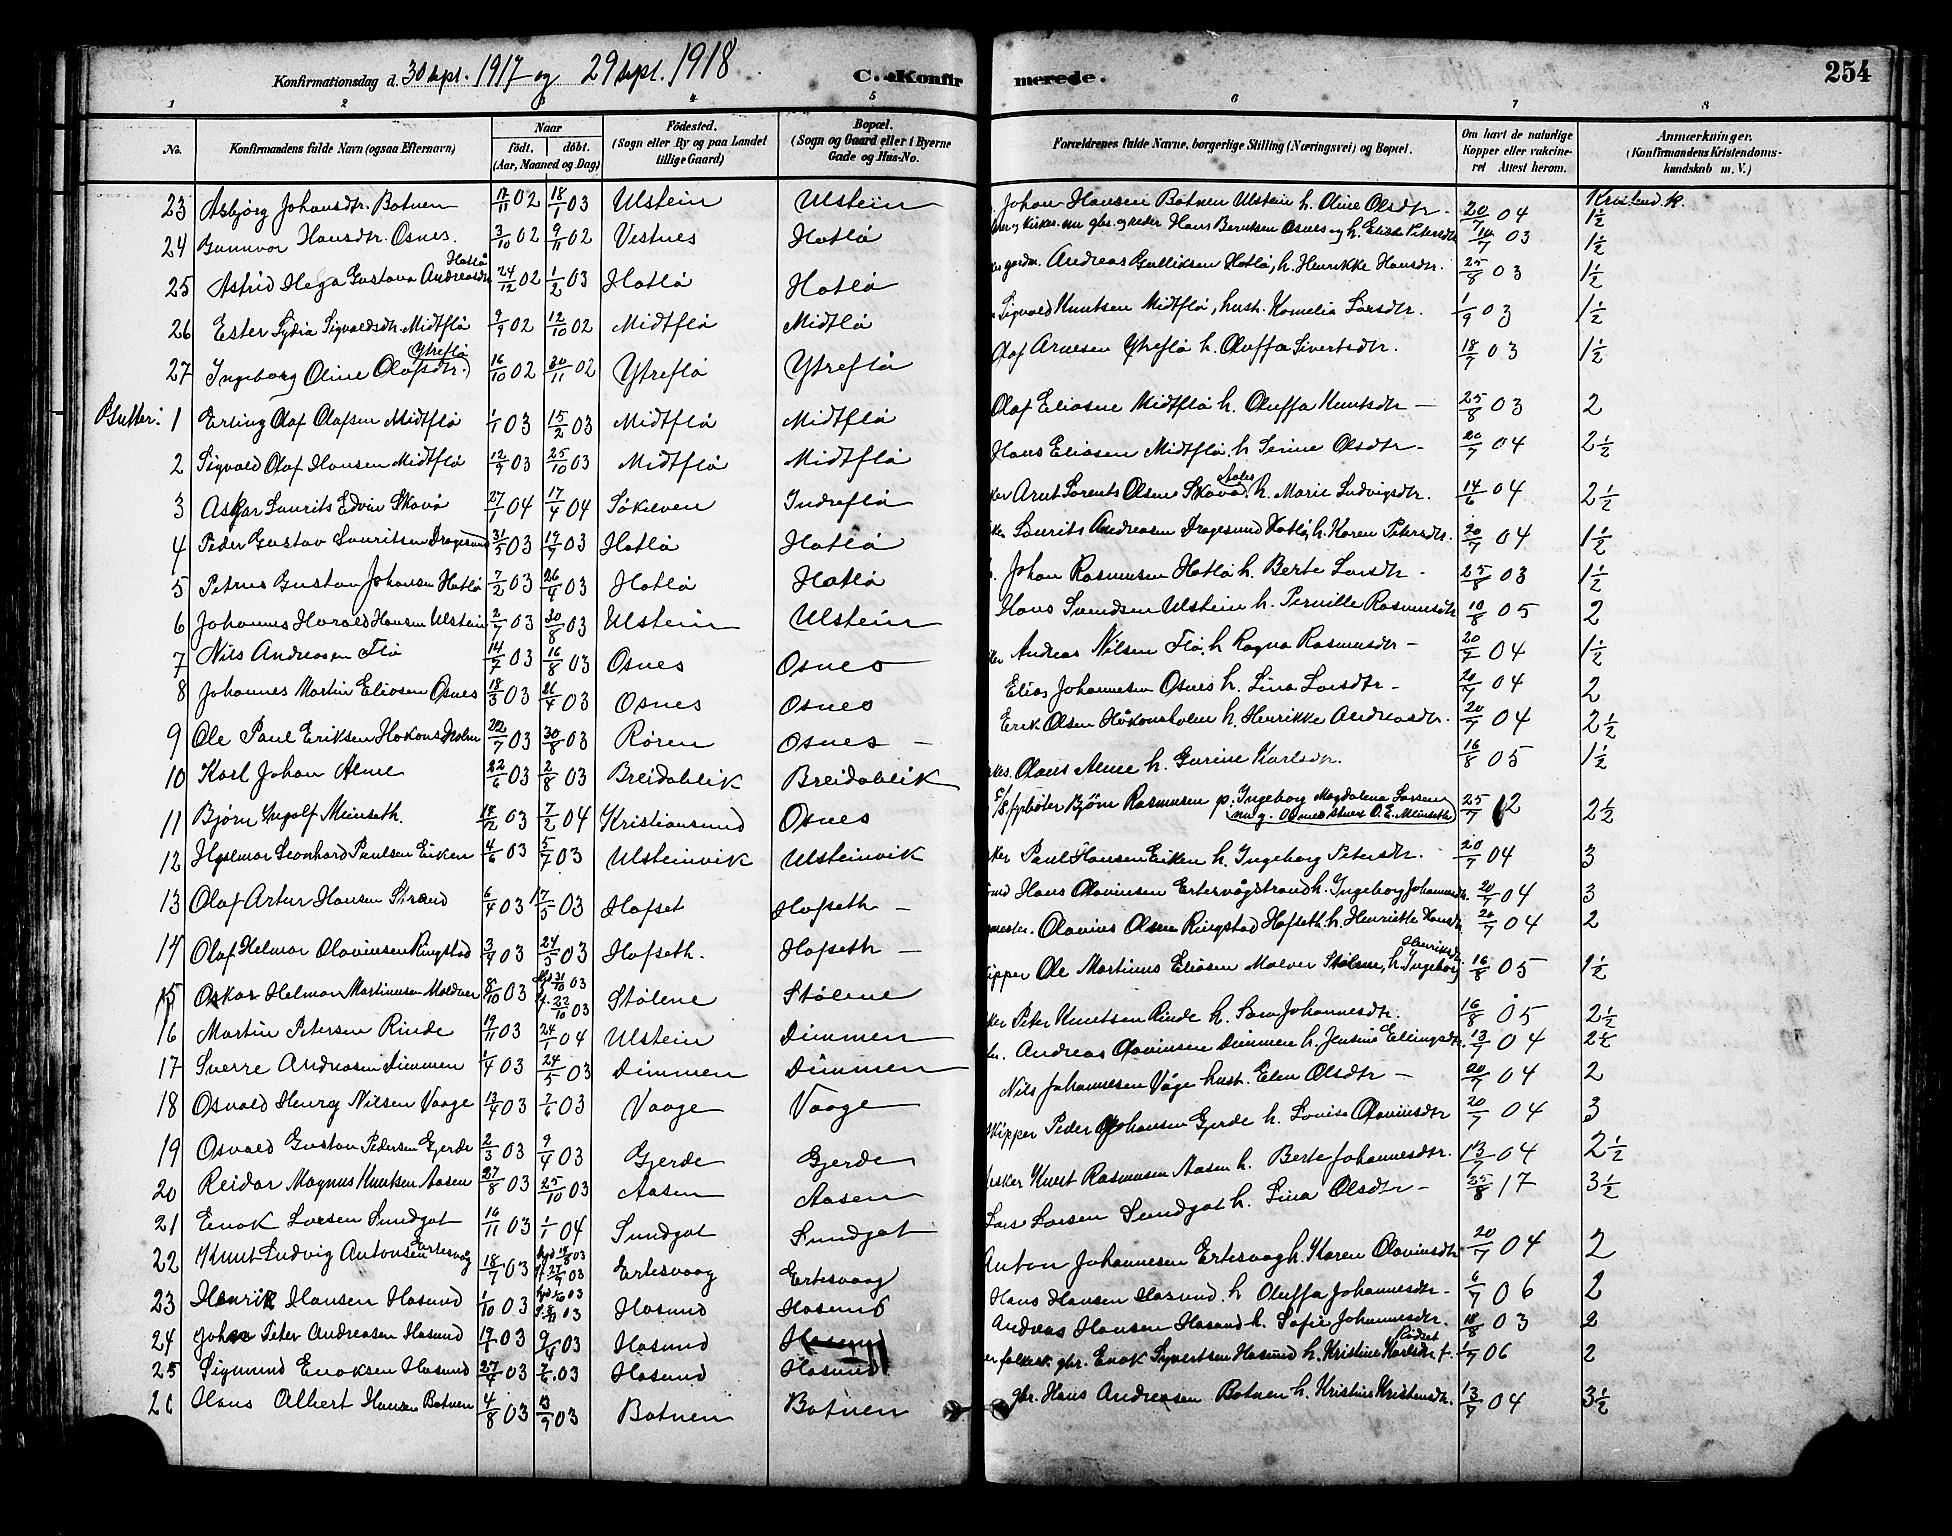 Konfirmationsdag d. 30 sept. 1917 og 29 sept. 1918
C. Konfirmerede.
254
1 2 3 4 5 6 7 8
No.
Konfirmandens fulde Navn (ogsaa Efternavn)
Naar
født. døbt.
(Aar, Maaned og Dag)
Födested.
(Sogn eller By og paa Landet
tillige Gaard)
Bopæl.
(Sogn og Gaard eller i Byerne
Gade og Hus-No.
Forældrenes fulde Navne, borgerlige Stilling (Næringsvei) og Bopæl.
Om havt de naturlige
Kopper eller vakcine-
ret Attest herom.
Anmærkninger.
(Konfirmandens Kristendoms-
kundskab m. V.)
Kristend.k.
23 Asbjørg Johansdtr. Botnen 17/11 02 18/1 03 Ulstein Ulstein Johan Hansen Botnen Ulstein h. Oline Olsdtr 20/7 04 1½
24 Gunnvor Hansdtr. Osnes. 3/10 02 9/11 02 Vestnes Hatlø gbr. og reder Hans Berntsen Osnes og h. Elise Petersdtr 10/7 03 1½
25 Astrid Helga Gustava Andreasdtr Hatlø 24/12 02 1/2 03 Hatlø Hatlø gardm. Andreas Gulliksen Hatlø, h. Henrikke Hansdtr. 25/8 03 1½
26 Ester Lydia Sigvaldsdtr. Midtflø 9/9 02 12/10 02 Midtflø Midtflø Sigvald Knutsen Midtflø, hust. Kornelia Larsdtr. 1/9 03 1½
27 Ingeborg Oline Olafsdtr. Ytreflø 16/10 02 30/11 02 Ytreflø Ytreflø Olaf Arnesen Ytreflø h. Oluffa Sivertsdtr. 18/7 03 1½
Gutter: 1 Erling Olaf Olafsen Midtflø 1/1 03 15/2 03 Midtflø Midtflø Olaf Eliasen Midtflø h. Oluffa Knutsdtr — 25/8 03 2
2 Sigvald Olaf Hansen Midtflø 12/9 03 25/10 03 Midtflø Midtflø Hans Eliasen Midtflø, h Serine Olsdtr - 20/7 04 2½
3 Asgar Laurits Edvin Skavø 27/1 04 17/4 04 Søkelven Indreflø Arnt Lorents Olsen Skavø, h. Marie Ludvigsdtr. 14/6 04 2½
4 Peder Gustav Lauritsen Dragesund 31/5 03 19/7 03 Hatlø Hatlø Laurits Andreasen Dragesund Hatlø, h. Karen Petersdtr. 20/7 04 1½
5 Petrus Gustav Johansen Hatlø 7/2 03 26/4 03 Hatlø Hatlø Johan Rasmusen Hatlø h. Berte Larsdtr - 25/8 03 1½
6 Johannes Harald Hansen Ulstein 2/7 03 30/8 03 Ulstein Ulstein Hans Svendsen Ulstein h. Pernille Rasmusdtr 10/8 05 2
7 Nils Andreasen Flø 14/7 03 16/8 03 Osnes Osnes Andreas Nilsen Flø, h Ragna Rasmusdtr — 20/7 04 1½
8 Johannes Martin Eliasen Osnes 18/3 03 26/4 03 Osnes Osnes Elias Johannesen Osnes h. Lina Larsdtr - 20/7 04 2
9 Ole Paul Eriksen Håkonsholm 22/7 03 30/8 03 Røren Osnes — Erik Olsen Håkonsholm h. Henrikke Andreasdtr. 20/7 04 2½
10 Karl Johan Alme 22/6 03 2/8 03 Breidablik Breidablik Olaus Alme h. Gurine Karlsdtr. 16/8 05 1½
11 Bjørn Ingolf Meinseth. 18/12 03 7/2 04 Kristiansund Osnes fyrbøter Bjørn Rasmusen p. Ingeborg Magdalena Larsen 25/7 12 2½
12 Hjelmar Leonhard Paulsen Eiken 4/6 03 5/7 03 Ulsteinvik Ulsteinvik Paul Hansen Eiken h. Ingeborg Petersdtr. 20/7 04 3
13 Olaf Artur Hansen Strand 6/4 03 17/5 03 Hofset Hofseth — Hans Olavinsen Ertesvågstrand h. Ingeborg Johannesdtr. 20/7 04 3
14 Olaf Helmar Olavinsen Ringstad 3/4 03 24/5 03 Hofseth. Hofseth — Olavius Olsen Ringstad Hofseth. h. Henriette Hansdtr. 20/7 04 2
15 Oskar Helmar Martinusen Moldver 8/10 03 hjd 21/10 03 k. 22/10 03 Stølene Stølene Ole Martinus Eliasen Molver Stølene, h Ingeborg Henriksdtr 16/8 05 1½
16 Martin Petersen Rinde 19/11 03 24/1 04 Ulstein Dimmen Peter Knutsen Rinde h. Johannesdtr. 16/8 05 2½
17 Sverre Andreasen Dimmen 1/4 03 24/5 03 Dimmen Dimmen Andreas Olavinsen Dimmen h. Jensine Ellingsdtr. 13/7 04 2½
18 Osvald Henry Nilsen Vaage 13/4 03 7/6 03 Vaage Vaage Nils Johannesen Våge hust. Elen Olsdtr — 20/7 04 2
19 Osvald Gustav Pedersen Gjerde 2/3 03 9/4 03 Gjerde Gjerde Skipper Peder Johansen Gjerde h. Lovise Olavinsdtr 20/7 04 3
20 Reidar Magnus Knutsen Aasen 27/8 03 25/10 03 Aasen Aasen fisker Knut Rasmusen Aasen h. Berte Johannesdtr. 13/7 04 2½
21 Enok Larsen Sundgot 16/11 03 1/1 04 Sundgot Sundgot Lars Larsen Sundgot h. Lina Olsdtr — 25/8 17 3½
22 Knut Ludvig Antonsen Ertesvaag 18/7 03 Ertesvaag Ertesvaag Anton Johannesen Ertesvaag h. Karen Olavinsdtr 20/7 04 2
23 Henrik Hansen Hasund 1/10 03 Hasund Hasund Hans Hansen Hasund. h Oluffa Johannesdtr - 6/7 06 2
24 Johan Peter Andreasen Hasund 03 03 Hasund Hasund Andreas Hansen Hasund h. Sofie Johannesdtr. 18/8 03 2
25 Sigmund Enoksen Hasund 27/4 03 7/6 03 Hasund Hasund gbr. Enok Syvertsen Hasund h. Kristine Karlsdtr f. Rødset 1/7 06 2
26 Hans Albert Hansen Botnen 4/8 03 13/9 03 Botnen Botnen gbr. Hans Andreasen Botnen h. Kristine Kristensdtr. 13/7 04 3½